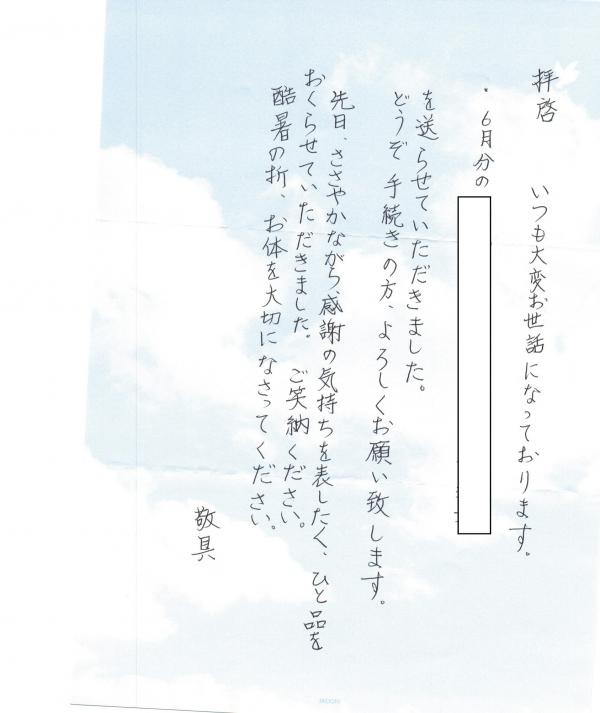 拝啓　いつも大変お世話になっております。
・6月分の
を送らせていただきました。
どうぞ手続きの方、よろしくお願い致します。
先日、ささやかながら、感謝の気持ちを表したく、ひと品を
おくらせていただきました。ご笑納ください。
酷暑の折、お体を大切になさってください。
敬具